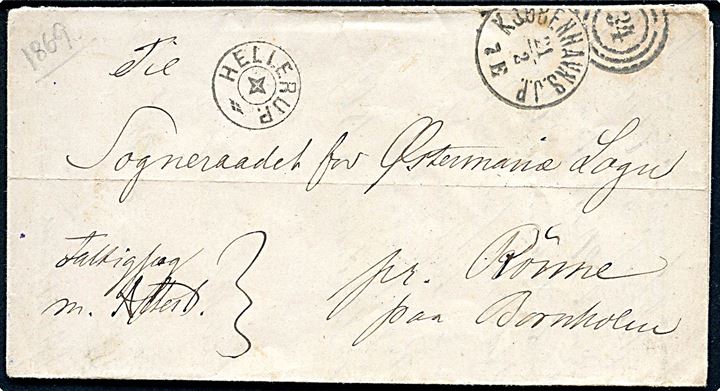 1869
Til
HELLERUP.
KJØBENHAVNS.J.P.
21
2
2 E
Sogneraadet for Østermariæ Sogn
Fattigsag
m. Attest.
3
pr. Rönne
paa Bornholm